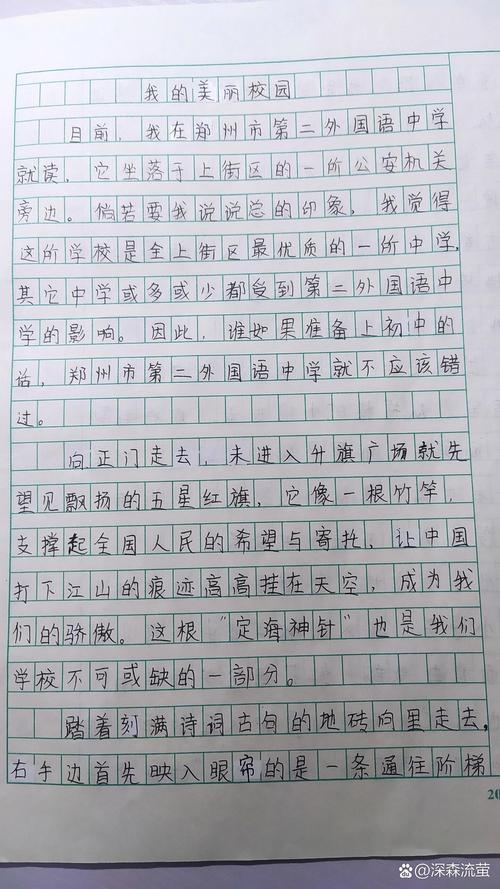 我的美丽校园
目前，我在郑州市第二外国语中学
就读，它坐落于上街区的一所公安机关
旁边。倘若要我说说总的印象，我觉得
这所学校是全上街区最优质的一所中学，
其它中学或多或少都受到第二外国语中
学的影响。因此，谁如果准备上初中的
话，郑州市第二外国语中学就不应该错
过。
向正门走去，未进入升旗广场就先
望见飘扬的五星红旗，它像一根竹竿，
支撑起全国人民的希望与寄托，让中国
打下江山的痕迹高高挂在天空，成为我
们的骄傲。这根“定海神针”也是我们
学校不可或缺的一部分。
踏着刻满诗词古句的地砖向里走去，
右手边首先映入眼帘的是一条通往阶梯
20
@深森流萤